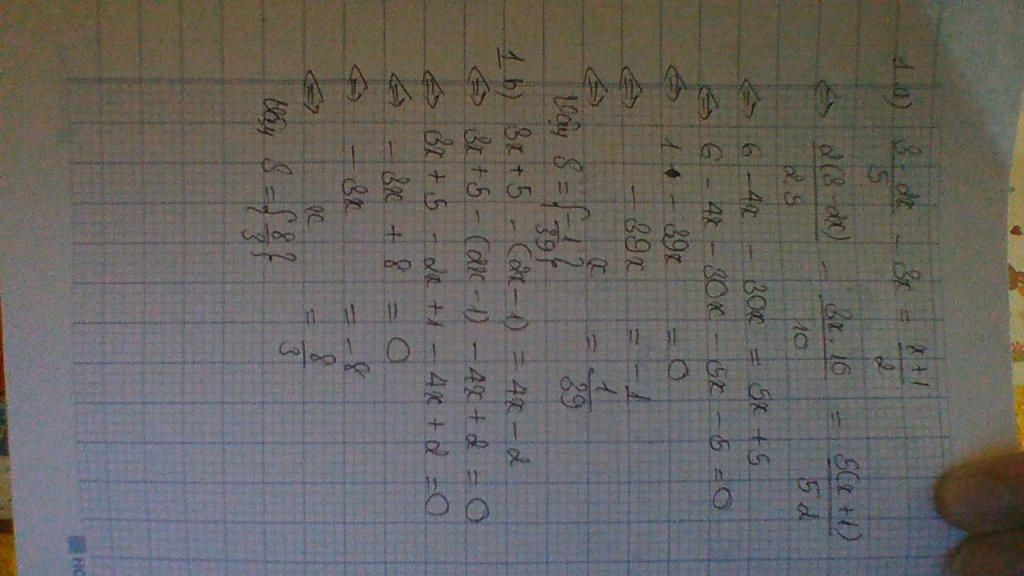 1.a) (3 - 2x)/5 - 3x = (x+1)/2
⇔ 2(3-2x)/2 5 - 3x . 10/10 = 5(x+1)/5 2
⇔ 6 - 4x - 30x = 5x + 5
⇔ 6 - 4x - 30x - 5x - 5 = 0
⇔ 1 - 39x = 0
⇔ - 39x = - 1
⇔ x = 1/39
Vậy S = {1/39}
1 b) 3x + 5 - (2x - 1) = 4x - 2
⇔ 3x + 5 - (2x - 1) - 4x + 2 = 0
⇔ 3x + 5 - 2x + 1 - 4x + 2 = 0
⇔ - 3x + 8 = 0
⇔ - 3x = - 8
⇔ x = 8/3
Vậy S = {8/3}